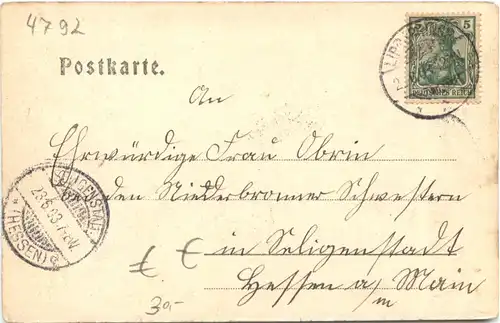 4792
5
DEUTSCHES REICH
Postkarte.
An
Ehrwürdige Frau Obrin
den Niederbronner Schwestern
SELIGENSTADT
23.6.03.
(HESSEN)
in Seligenstadt
Hessen a Main
m
30.-